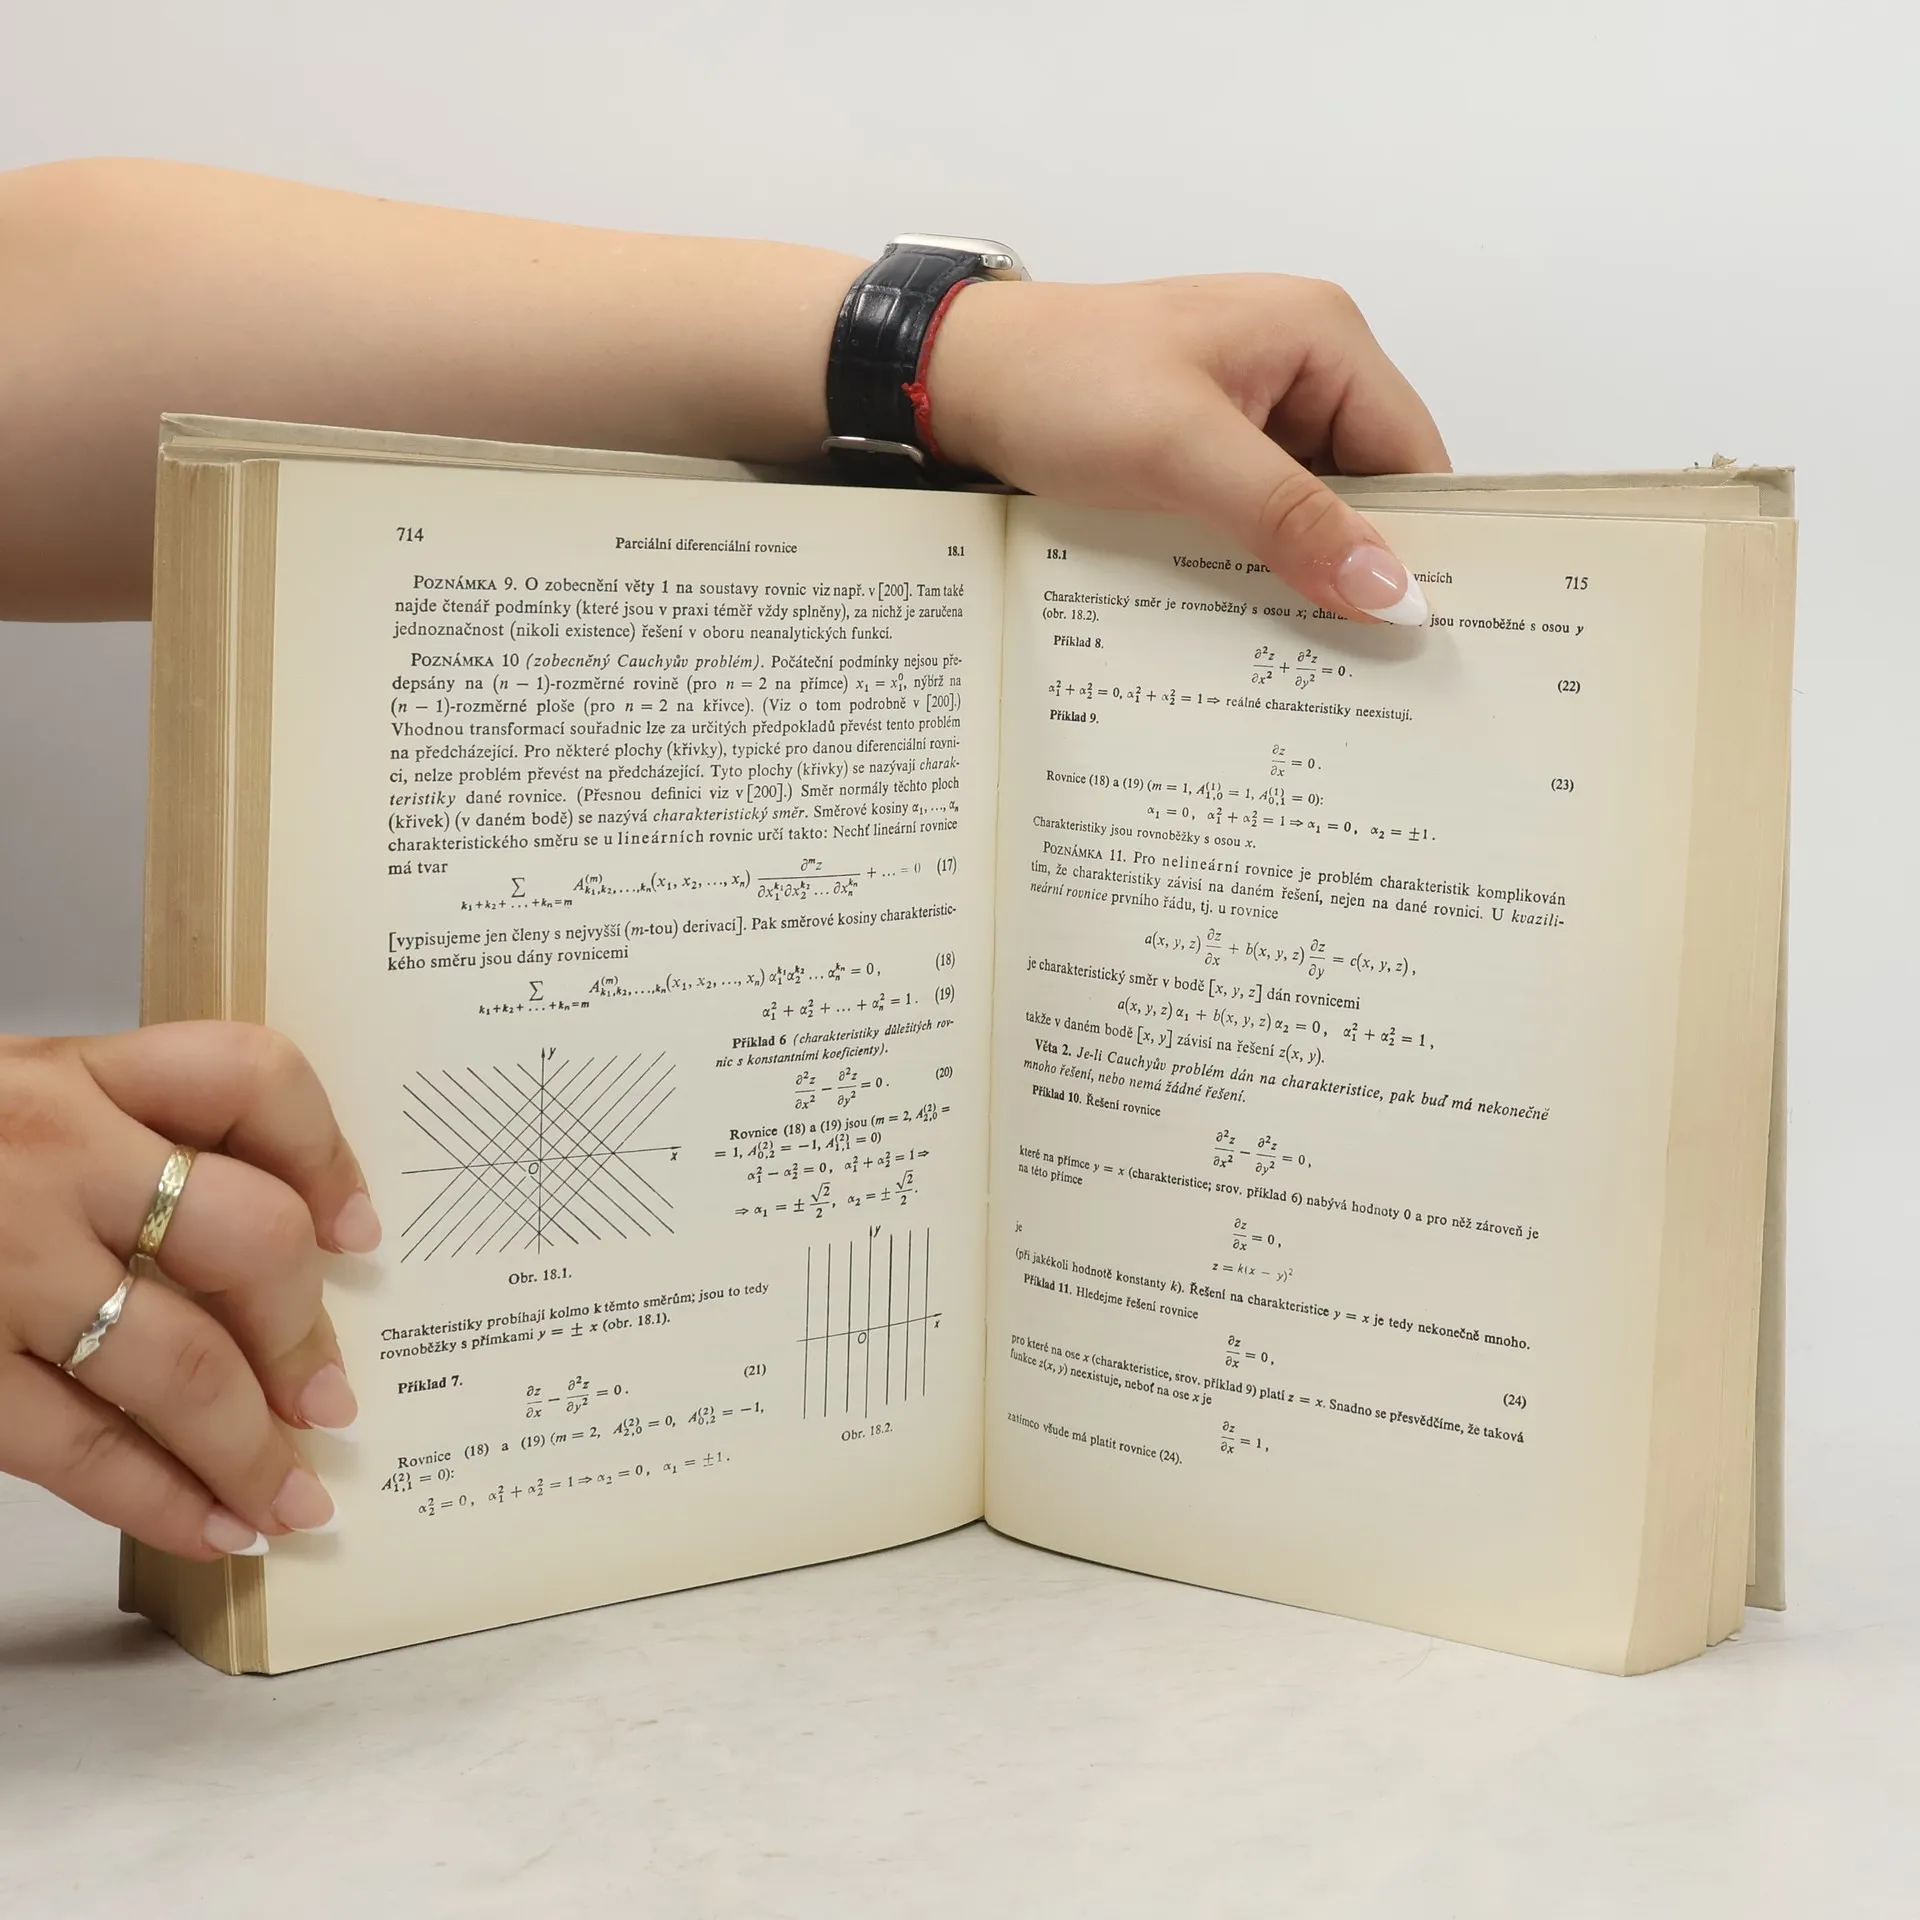 714
Parciální diferenciální rovnice
18.1
POZNÁMKA 9. O zobecnění věty 1 na soustavy rovnic viz např. v [200]. Tam také
najde čtenář podmínky (které jsou v praxi téměř vždy splněny), za nichž je zaručena
jednoznačnost (nikoli existence) řešení v oboru neanalytických funkcí.
POZNÁMKA 10 (zobecněný Cauchyův problém). Počáteční podmínky nejsou pře-
depsány na (n − 1)-rozměrné rovině (pro n = 2 na přímce) x₁ = x₁⁰, nýbrž na
(n − 1)-rozměrné ploše (pro n = 2 na křivce). (Viz o tom podrobně v [200].)
Vhodnou transformací souřadnic lze za určitých předpokladů převést tento problém
na předcházející. Pro některé plochy (křivky), typické pro danou diferenciální rovni-
ci, nelze problém převést na předcházející. Tyto plochy (křivky) se nazývají charak-
teristiky dané rovnice. (Přesnou definici viz v [200].) Směr normály těchto ploch
(křivek) (v daném bodě) se nazývá charakteristický směr. Směrové kosiny α₁, ..., αₙ
charakteristického směru se u lineárních rovnic určí takto: Nechť lineární rovnice
má tvar
∑_{k₁+k₂+...+kₙ=m} A^{(m)}_{k₁,k₂,...,kₙ}(x₁, x₂, ..., xₙ) ∂ᵐz / ∂x₁^{k₁}∂x₂^{k₂} ... ∂xₙ^{kₙ} + ... = 0 (17)
[vypisujeme jen členy s nejvyšší (m-tou) derivací]. Pak směrové kosiny charakteristic-
kého směru jsou dány rovnicemi
∑_{k₁+k₂+...+kₙ=m} A^{(m)}_{k₁,k₂,...,kₙ}(x₁, x₂, ..., xₙ) α₁^{k₁}α₂^{k₂} ... αₙ^{kₙ} = 0, (18)
α₁² + α₂² + ... + αₙ² = 1. (19)
Příklad 6 (charakteristiky důležitých rov-
nic s konstantními koeficienty).
∂²z/∂x² − ∂²z/∂y² = 0. (20)
Rovnice (18) a (19) jsou (m = 2, A^{(2)}_{2,0} =
= 1, A^{(2)}_{0,2} = −1, A^{(2)}_{1,1} = 0)
α₁² − α₂² = 0, α₁² + α₂² = 1 ⇒
⇒ α₁ = ± √2/2, α₂ = ± √2/2.
y
x
O
Obr. 18.1.
Charakteristiky probíhají kolmo k těmto směrům; jsou to tedy
rovnoběžky s přímkami y = ± x (obr. 18.1).
Příklad 7.
∂z/∂x − ∂²z/∂y² = 0. (21)
Rovnice (18) a (19) (m = 2, A^{(2)}_{2,0} = 0, A^{(2)}_{0,2} = −1,
A^{(2)}_{1,1} = 0):
α₂² = 0, α₁² + α₂² = 1 ⇒ α₂ = 0, α₁ = ±1.
y
x
O
Obr. 18.2.
18.1
Všeobecně o
vnicích
715
Charakteristický směr je rovnoběžný s osou x; jsou rovnoběžné s osou y
(obr. 18.2).
Příklad 8.
∂²z/∂x² + ∂²z/∂y² = 0. (22)
α₁² + α₂² = 0, α₁² + α₂² = 1 ⇒ reálné charakteristiky neexistují.
Příklad 9.
∂z/∂x = 0. (23)
Rovnice (18) a (19) (m = 1, A^{(1)}_{1,0} = 1, A^{(1)}_{0,1} = 0):
α₁ = 0, α₁² + α₂² = 1 ⇒ α₁ = 0, α₂ = ±1.
Charakteristiky jsou rovnoběžky s osou x.
POZNÁMKA 11. Pro nelineární rovnice je problém charakteristik komplikován
tím, že charakteristiky závisí na daném řešení, nejen na dané rovnici. U kvazili-
neární rovnice prvního řádu, tj. u rovnice
a(x, y, z) ∂z/∂x + b(x, y, z) ∂z/∂y = c(x, y, z),
je charakteristický směr v bodě [x, y, z] dán rovnicemi
a(x, y, z) α₁ + b(x, y, z) α₂ = 0, α₁² + α₂² = 1,
takže v daném bodě [x, y] závisí na řešení z(x, y).
Věta 2. Je-li Cauchyův problém dán na charakteristice, pak buď má nekonečně
mnoho řešení, nebo nemá žádné řešení.
Příklad 10. Řešení rovnice
∂²z/∂x² − ∂²z/∂y² = 0,
které na přímce y = x (charakteristice; srov. příklad 6) nabývá hodnoty 0 a pro něž zároveň je
na této přímce
∂z/∂x = 0,
je
z = k(x − y)²
(při jakékoli hodnotě konstanty k). Řešení na charakteristice y = x je tedy nekonečně mnoho.
Příklad 11. Hledejme řešení rovnice
∂z/∂x = 0, (24)
pro které na ose x (charakteristice, srov. příklad 9) platí z = x. Snadno se přesvědčíme, že taková
funkce z(x, y) neexistuje, neboť na ose x je
∂z/∂x = 1,
zatímco všude má platit rovnice (24).